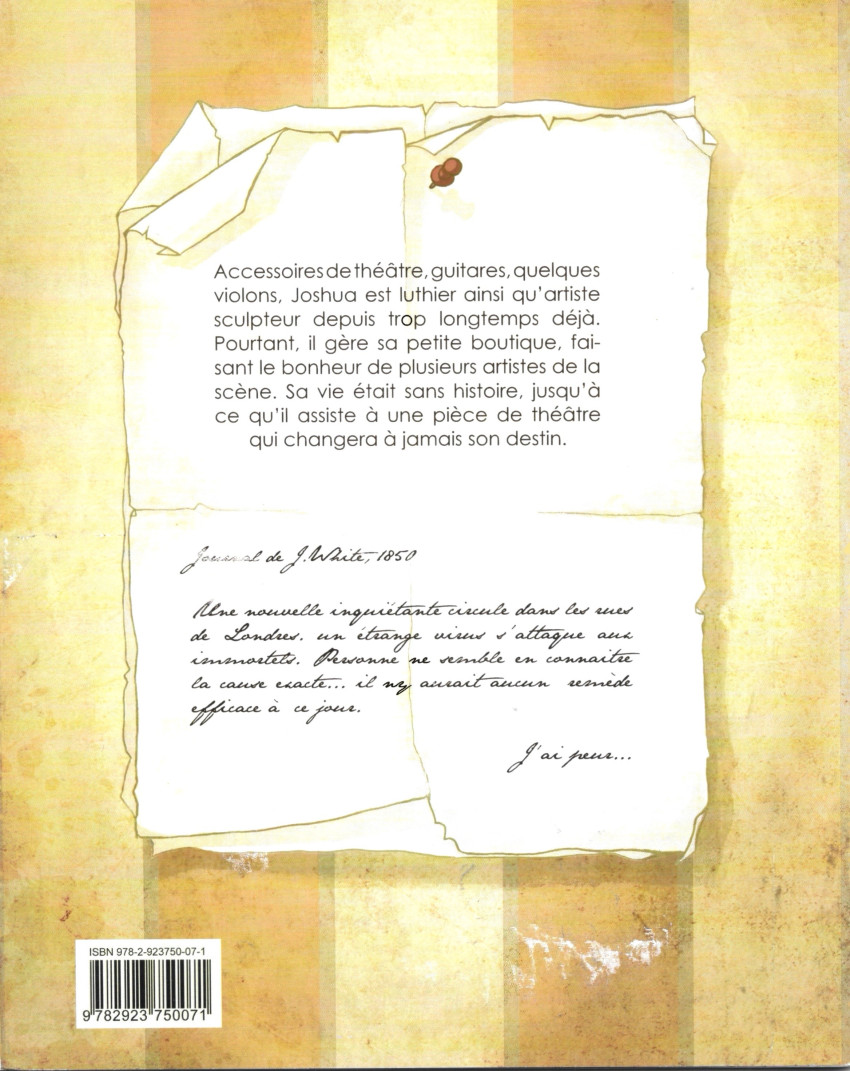 Accessoires de théâtre, guitares, quelques
violons, Joshua est luthier ainsi qu'artiste
sculpteur depuis trop longtemps déjà.
Pourtant, il gère sa petite boutique, fai-
sant le bonheur de plusieurs artistes de la
scène. Sa vie était sans histoire, jusqu'à
ce qu'il assiste à une pièce de théâtre
qui changera à jamais son destin.
Journal de J. White, 1850
Une nouvelle inquiétante circule dans les rues
de Londres. un étrange virus s'attaque aux
immortels. Personne ne semble en connaitre
la cause exacte... il ny aurait aucun remède
efficace à ce jour.
J'ai peur...
ISBN 978-2-923750-07-1
9 782923 750071